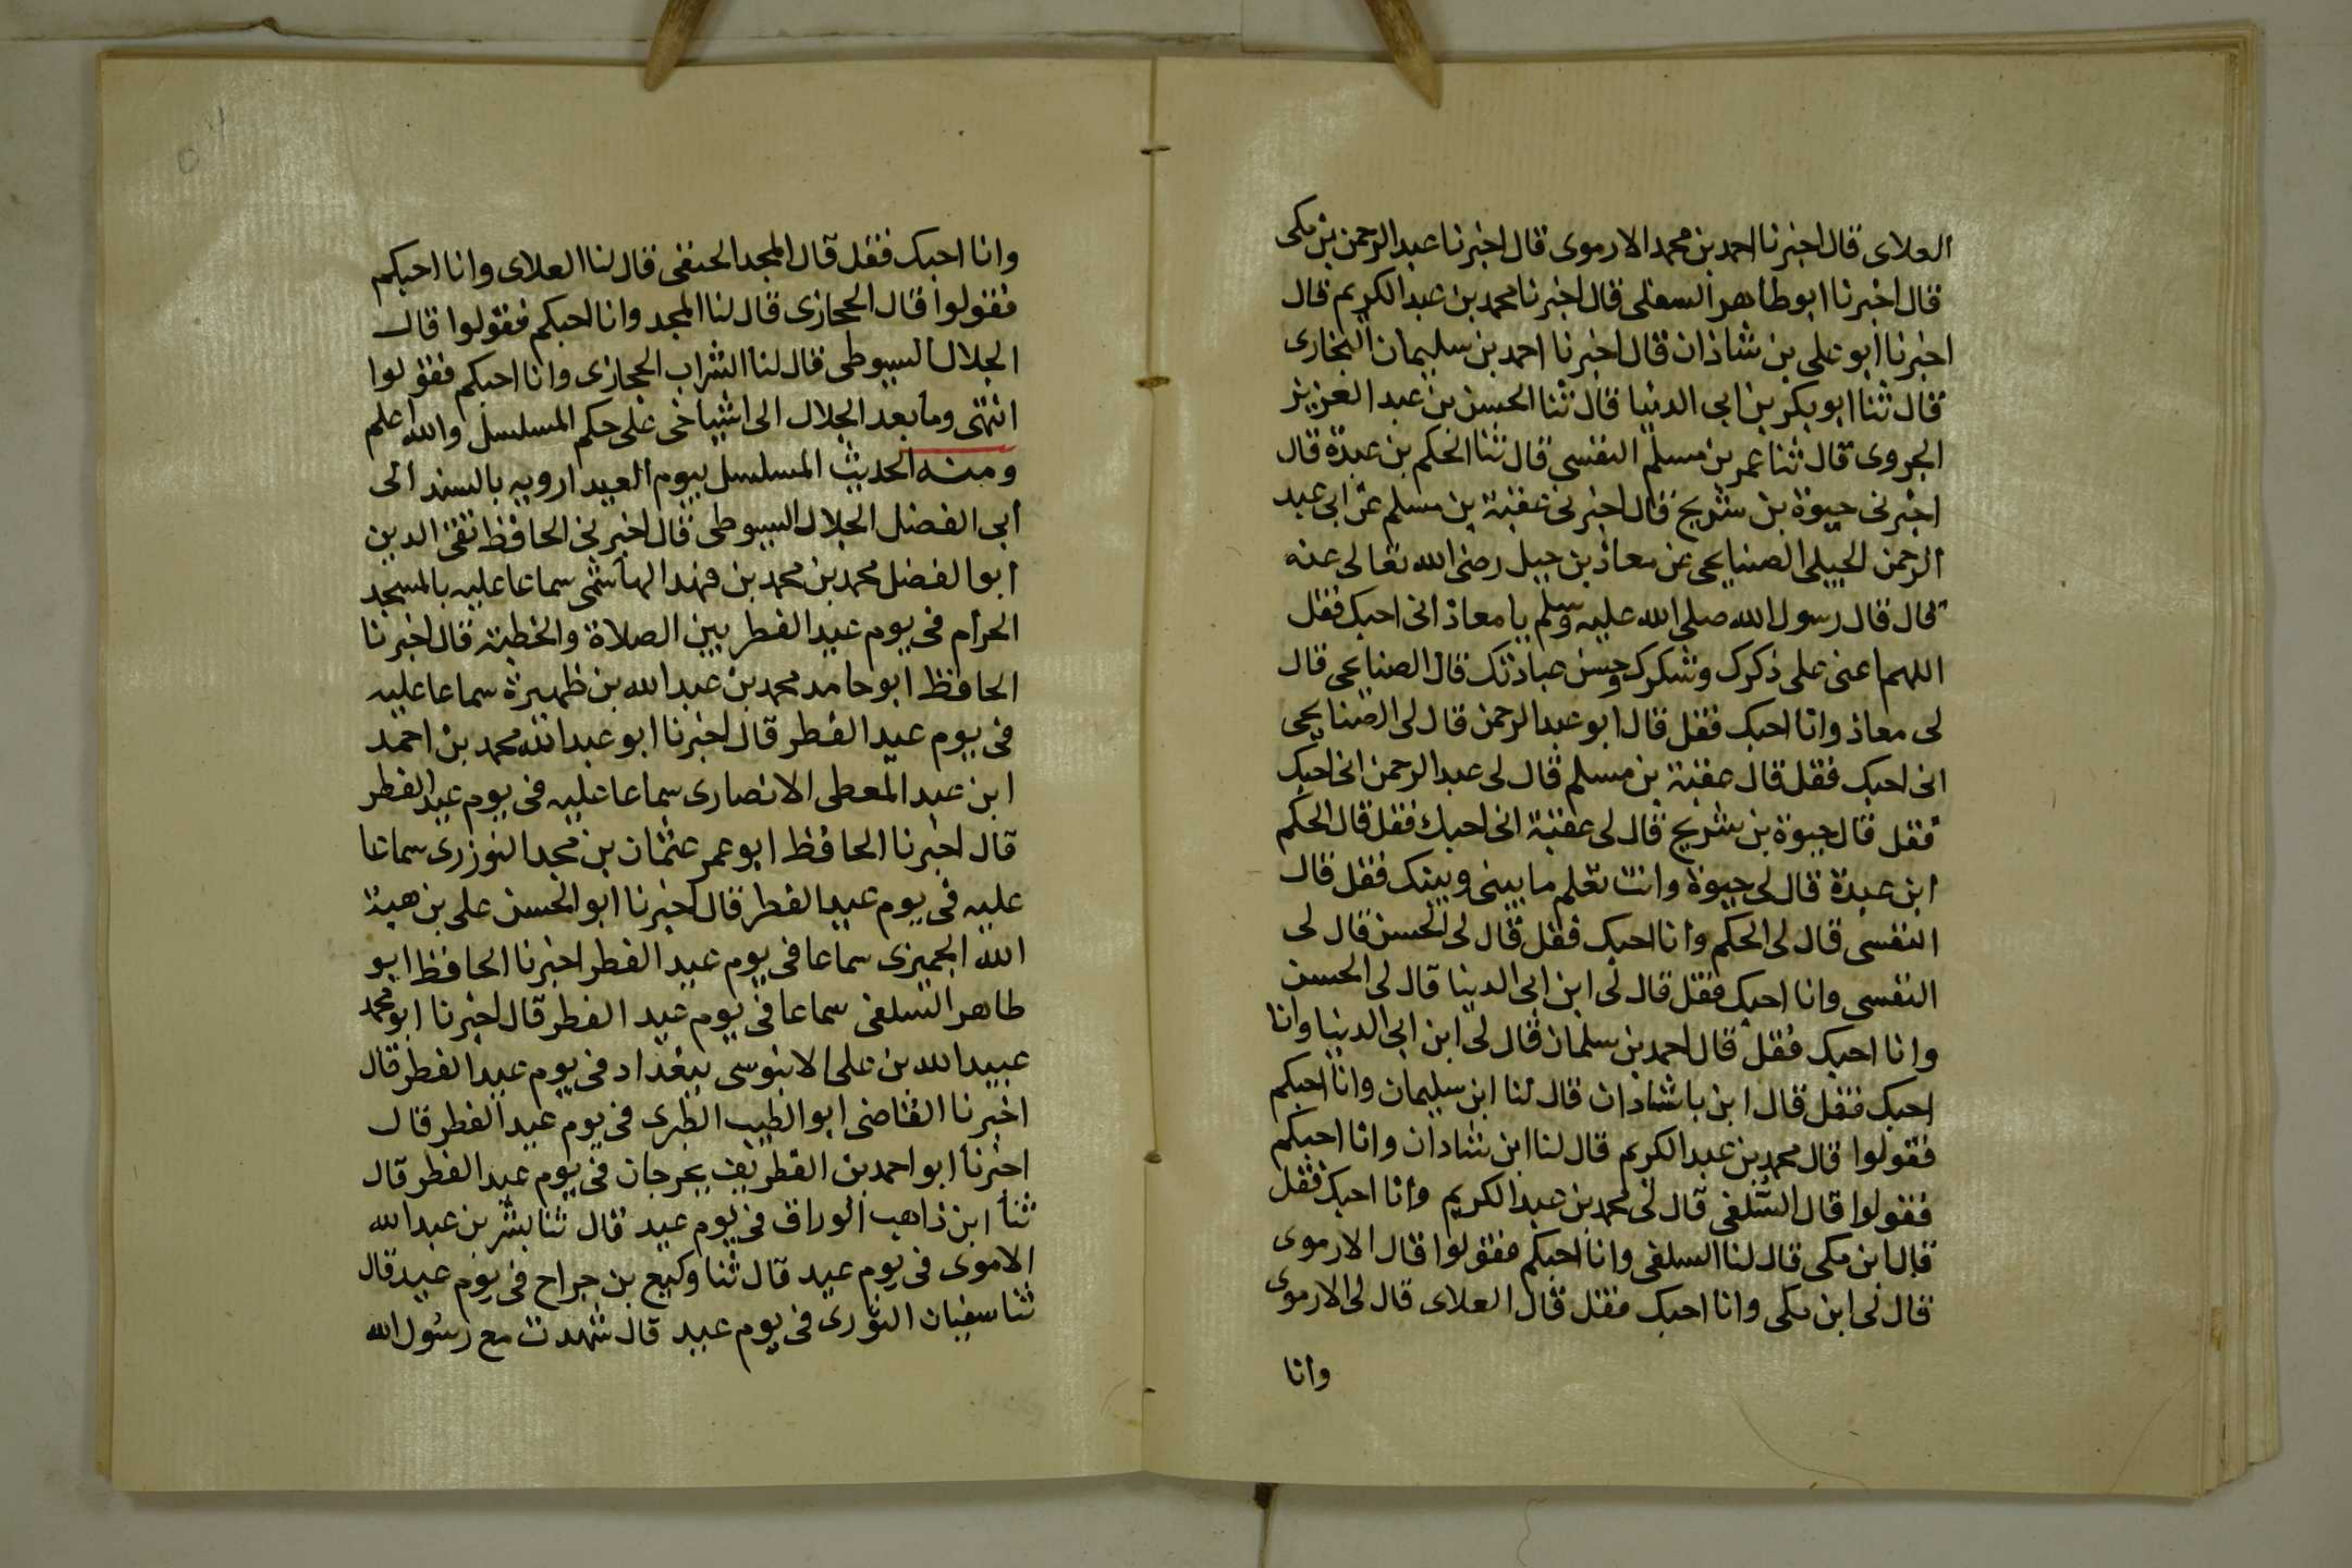 العلاى قال اخبرنا احمد بن محمد الارموى قال اخبرنا عبد الرحمن بن مكى
قال اخبرنا ابو طاهر السفلى قال اخبرنا محمد بن عبد الكريم قال
اخبرنا ابو على بن شاذان قال اخبرنا احمد بن سليمان النجارى
قال ثنا ابو بكر بن ابى الدنيا قال ثنا الحسن بن عبد العزيز
الجروى قال ثنا عمر بن مسلم التفسى قال ثنا الحكم بن عبدة قال
اخبرنى حيوة بن شريح قال اخبرنى عقبة بن مسلم عن ابى عبد
الرحمن الحبلى الصنابحى عن معاذ بن جبل رضى الله تعالى عنه
قال قال رسول الله صلى الله عليه وسلم يا معاذ انى احبك فقل
اللهم اعنى على ذكرك وشكرك وحسن عبادتك قال الصنابحى قال
لى معاذ وانا احبك فقل قال ابو عبد الرحمن قال لى الصنابحى
انى احبك فقل قال عقبة بن مسلم قال لى عبد الرحمن انى احبك
فقل قال حيوة بن شريح قال لى عقبة انى احبك فقل قال الحكم
ابن عبدة قال لى حيوة وانت تعلم ما بينى وبينك فقل قال
التفسى قال لى الحكم وانا احبك فقل قال لى الحسن قال لى
التفسى وانا احبك فقل قال لى ابن ابى الدنيا قال لى الحسن
وانا احبك فقل قال احمد بن سلمان قال لى ابن ابى الدنيا وانا
احبك فقل قال ابن باشاذان قال لنا ابن سليمان وانا احبكم
فقولوا قال محمد بن عبد الكريم قال لنا ابن شاذان وانا احبكم
فقولوا قال السلفى قال لى محمد بن عبد الكريم وانا احبك فقل
قال ابن مكى قال لنا السلفى وانا احبكم فقولوا قال الارموى
قال لى ابن مكى وانا احبك فقل قال العلاى قال لى الارموى
وانا
وانا احبك فقل قال المجد الحنفى قال لنا العلاى وانا احبكم
فقولوا قال الحجازى قال لنا المجد وانا احبكم فقولوا قال
الجلال السيوطى قال لنا الشراب الحجازى وانا احبكم فقولوا
انتهى وما بعد الجلال الى اشياخى على حكم المسلسل والله اعلم
ومنه الحديث المسلسل بيوم العيد ارويه بالسند الى
أبى الفضل الجلال السيوطى قال اخبرنى الحافظ تقى الدين
أبو الفضل محمد بن محمد بن فهد الهاشمى سماعا عليه بالمسجد
الحرام فى يوم عيد الفطر بين الصلاة والخطبة قال اخبرنا
الحافظ ابو حامد محمد بن عبد الله بن ظهيرة سماعا عليه
فى يوم عيد الفطر قال اخبرنا ابو عبد الله محمد بن احمد
ابن عبد المعطى الانصارى سماعا عليه فى يوم عيد الفطر
قال اخبرنا الحافظ ابو عمر عثمان بن محمد التوزرى سماعا
عليه فى يوم عيد الفطر قال اخبرنا ابو الحسن على بن هبة
الله الجميزى سماعا فى يوم عيد الفطر اخبرنا الحافظ ابو
طاهر السلفى سماعا فى يوم عيد الفطر قال اخبرنا ابو محمد
عبيد الله بن على الابنوسى ببغداد فى يوم عيد الفطر قال
اخبرنا القاضى ابو الطيب الطبرى فى يوم عيد الفطر قال
اخبرنا ابو احمد بن الغطريف بجرجان فى يوم عيد الفطر قال
ثنا ابن ذاهب الوراق فى يوم عيد قال ثنا بشر بن عبد الله
الاموى فى يوم عيد قال ثنا وكيع بن جراح فى يوم عيد قال
ثنا سفيان الثورى فى يوم عيد قال شهدت مع رسول الله